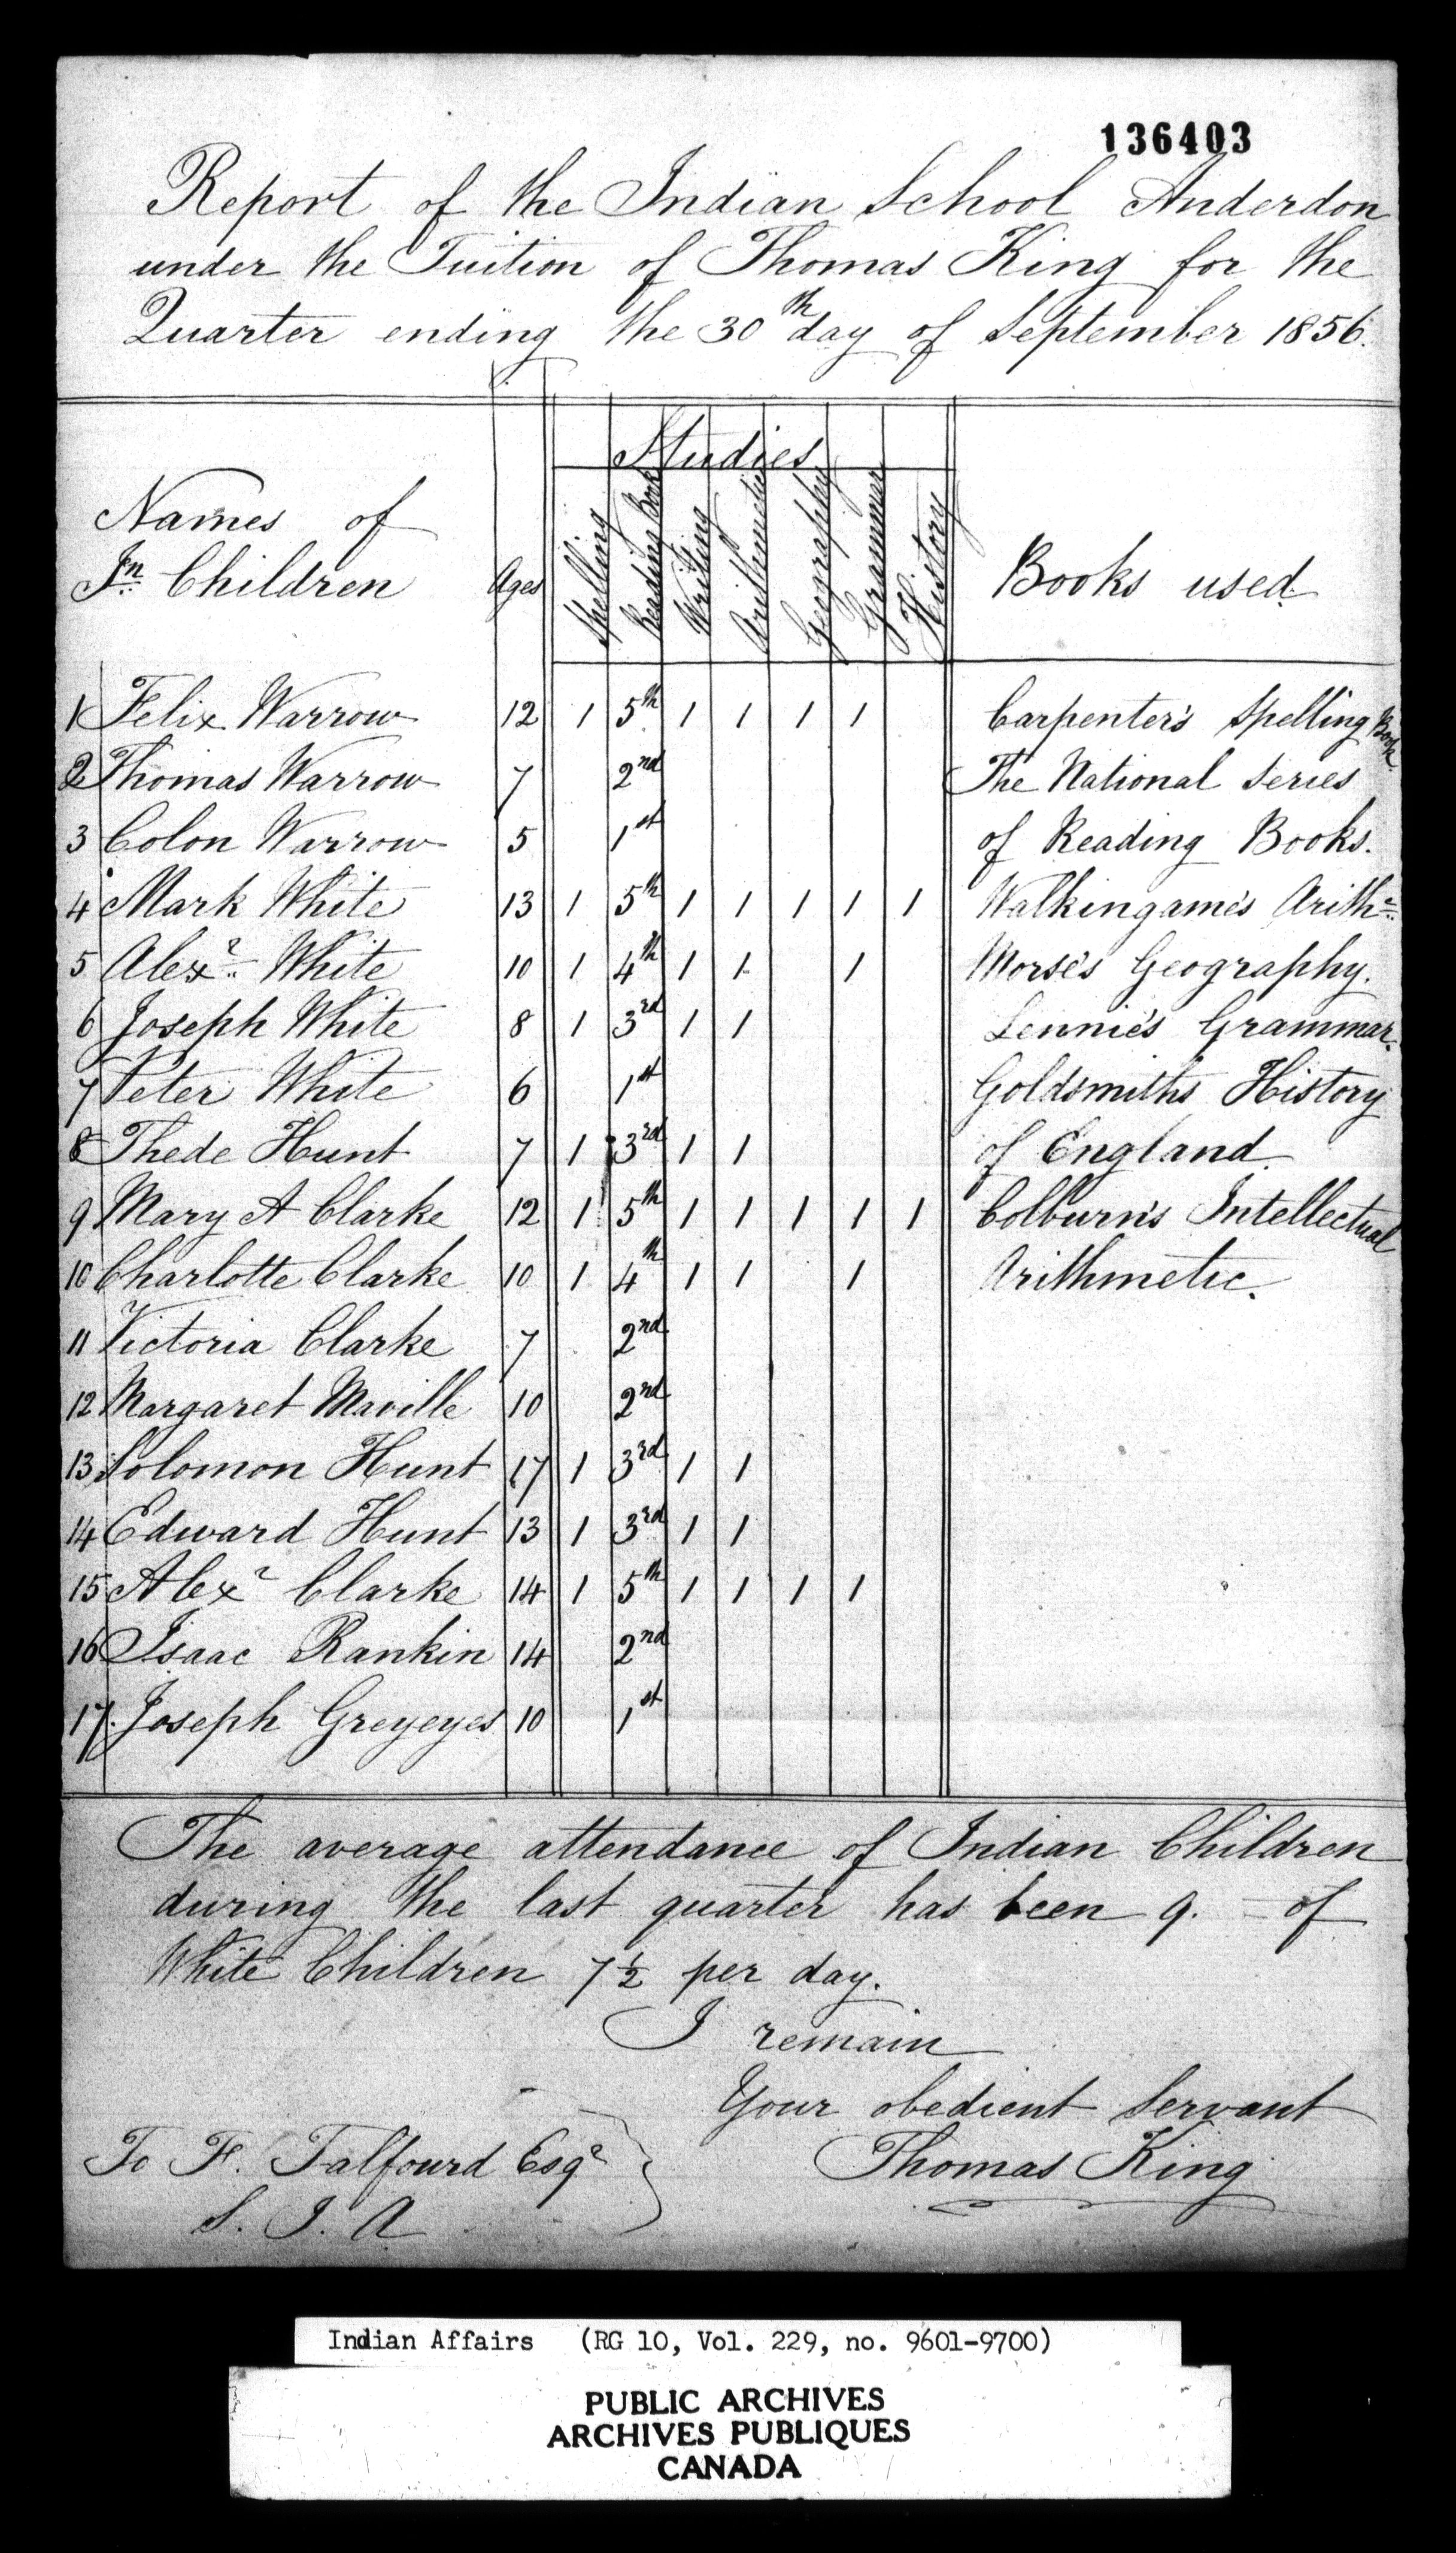 136403
Report of the Indian School Anderdon
under the Tuition of Thomas King for the
Quarter ending the 30th day of September 1856.
Studies
Names of
In Children Ages Spelling Reading Book Writing Arithmetic Geography Grammar History Books used
1 Felix Warrow 12 1 5th 1 1 1 1 Carpenter's Spelling Book.
2 Thomas Warrow 7 2nd The National Series
3 Colon Warrow 5 1st of Reading Books.
4 Mark White 13 1 5th 1 1 1 1 1 Walkingame's Arithc
5 Alexr White 10 1 4th 1 1 1 Morse's Geography.
6 Joseph White 8 1 3rd 1 1 Lennie's Grammar.
7 Peter White 6 1st Goldsmiths History
8 Thede Hunt 7 1 3rd 1 1 of England.
9 Mary A Clarke 12 1 5th 1 1 1 1 1 Colburn's Intellectual
10 Charlotte Clarke 10 1 4th 1 1 1 Arithmetic.
11 Victoria Clarke 7 2nd
12 Margaret Maville 10 2nd
13 Solomon Hunt 17 1 3rd 1 1
14 Edward Hunt 13 1 3rd 1 1
15 Alexr Clarke 14 1 5th 1 1 1 1
16 Isaac Rankin 14 2nd
17. Joseph Greyeyes 10 1st
The average attendance of Indian Children
during the last quarter has been 9. – of
White Children 7½ per day.
I remain
Your obedient Servant
To F. Talfourd Esqr Thomas King
S. I. A
Indian Affairs (RG 10, Vol. 229, no. 9601-9700)
PUBLIC ARCHIVES
ARCHIVES PUBLIQUES
CANADA